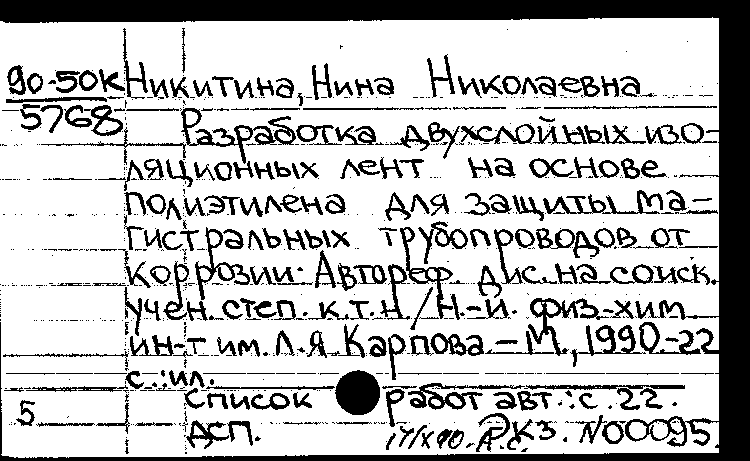 90-50К Никитина, Нина Николаевна
5768
Разработка двухслойных изо-
ляционных лент на основе
полиэтилена для защиты ма-
гистральных трубопроводов от
коррозии: Автореф. дис. на соиск.
учен. степ. к.т.н. / Н.-и. физ-хим
ин-т им. Л.Я. Карпова. – М., 1990. -22
с.: ил.
Список работ авт.: с. 22.
5
ДСП. 17/X 90. Экз. N00095.